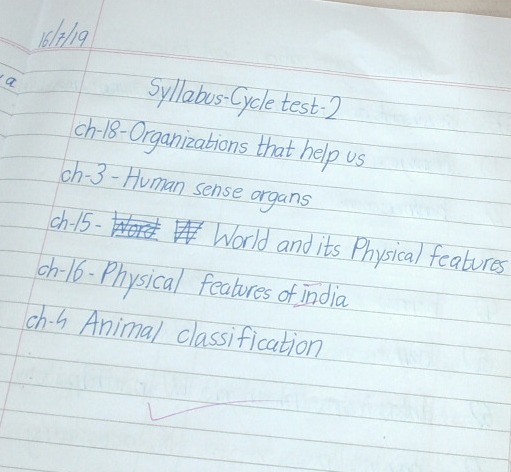 16/7/19
a
Syllabus-Cycle test-2
ch-18-Organizations that help us
ch-3-Human sense organs
ch-15- World and its Physical features
ch-16-Physical features of india
ch-4 Animal classification